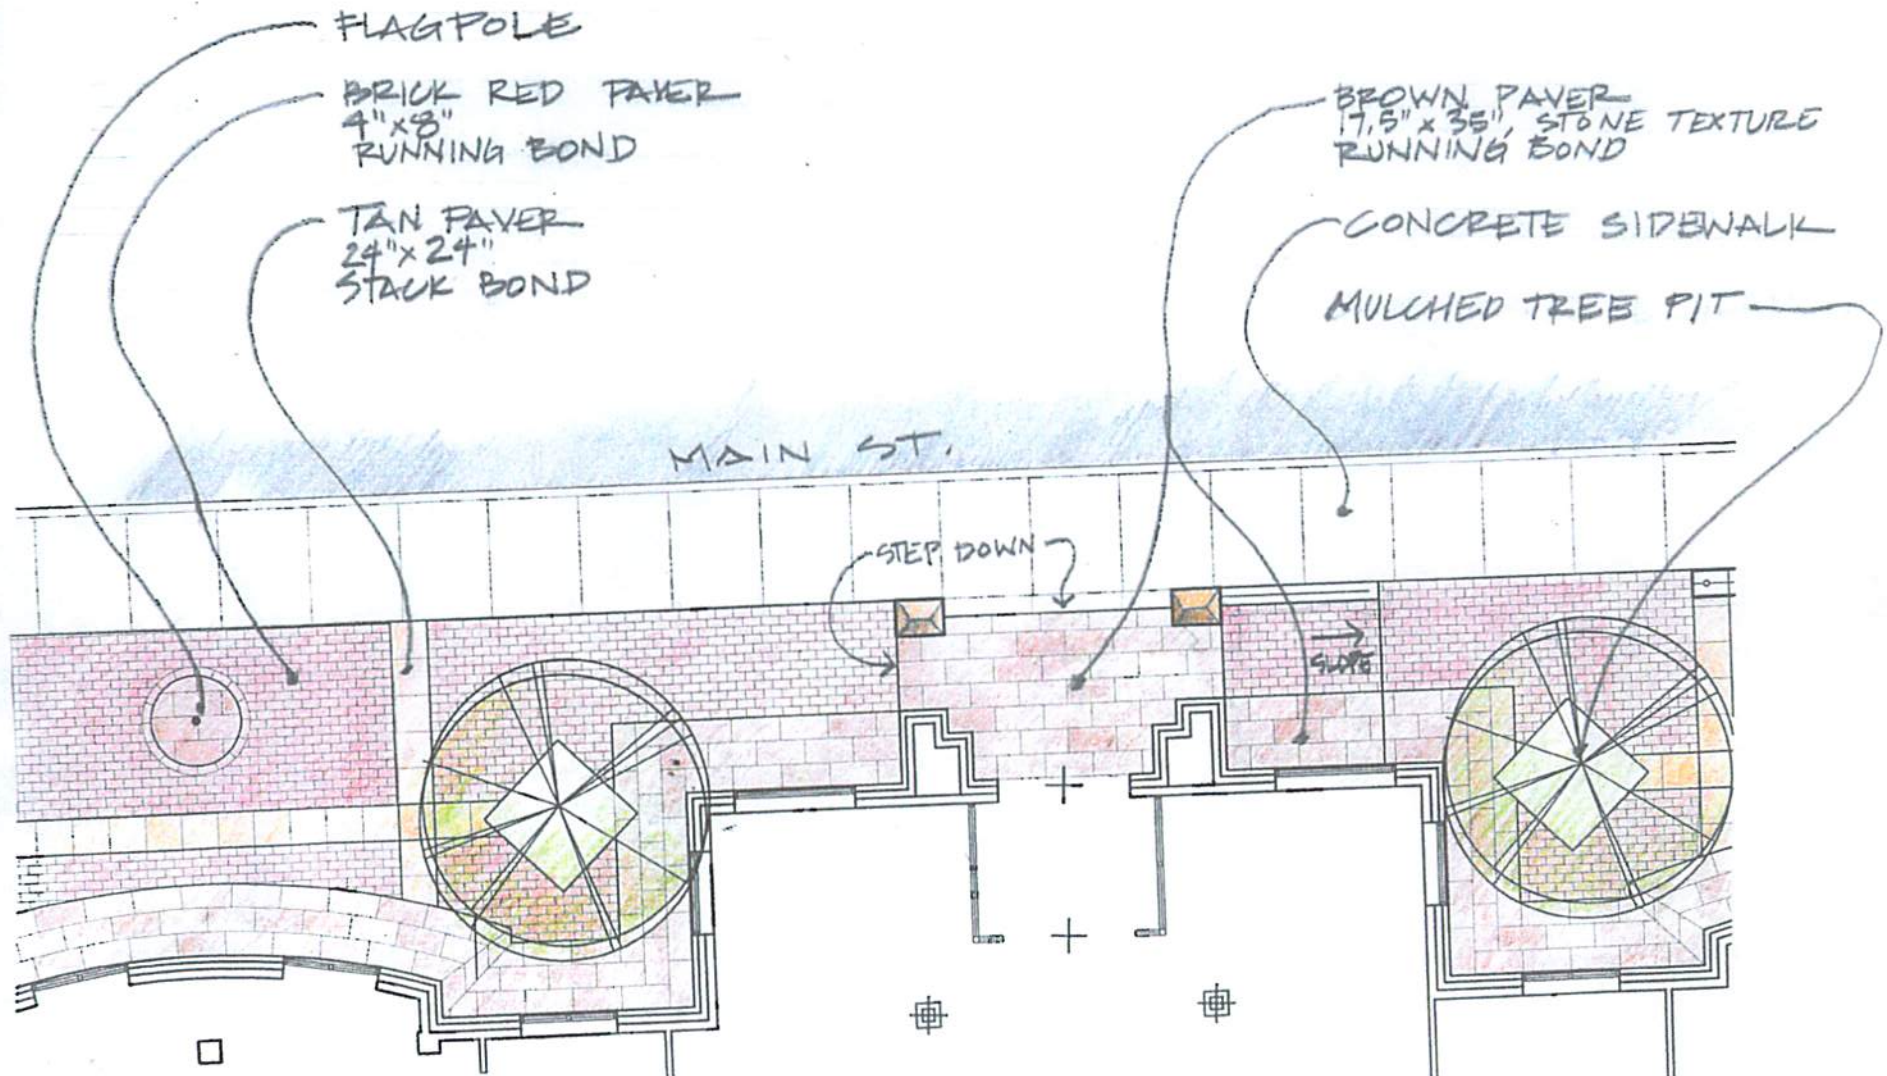 FLAGPOLE
BRICK RED PAVER
4"x8"
RUNNING BOND
TAN PAVER
24"x24"
STACK BOND
BROWN PAVER
17.5" x 35", STONE TEXTURE
RUNNING BOND
CONCRETE SIDEWALK
MULCHED TREE PIT
MAIN ST.
STEP DOWN
SLOPE